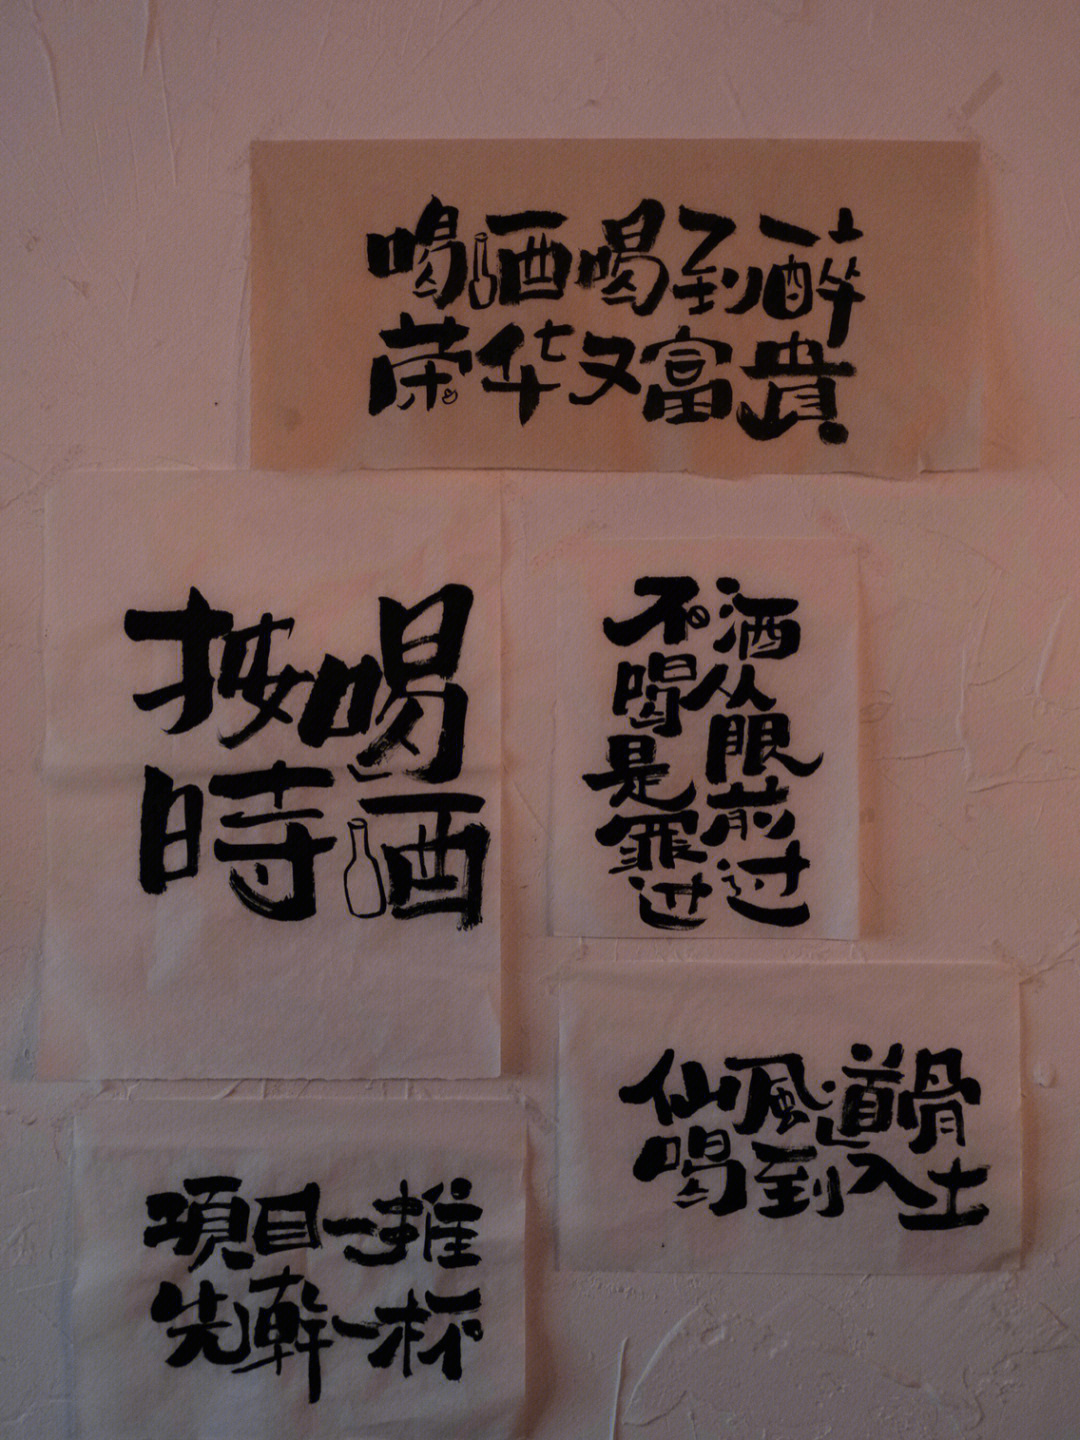 喝酒喝到醉
荣华又富貴
按時
喝酒
酒从眼前过
不喝是罪过
仙風道骨
喝到入土
項目一堆
先幹一杯